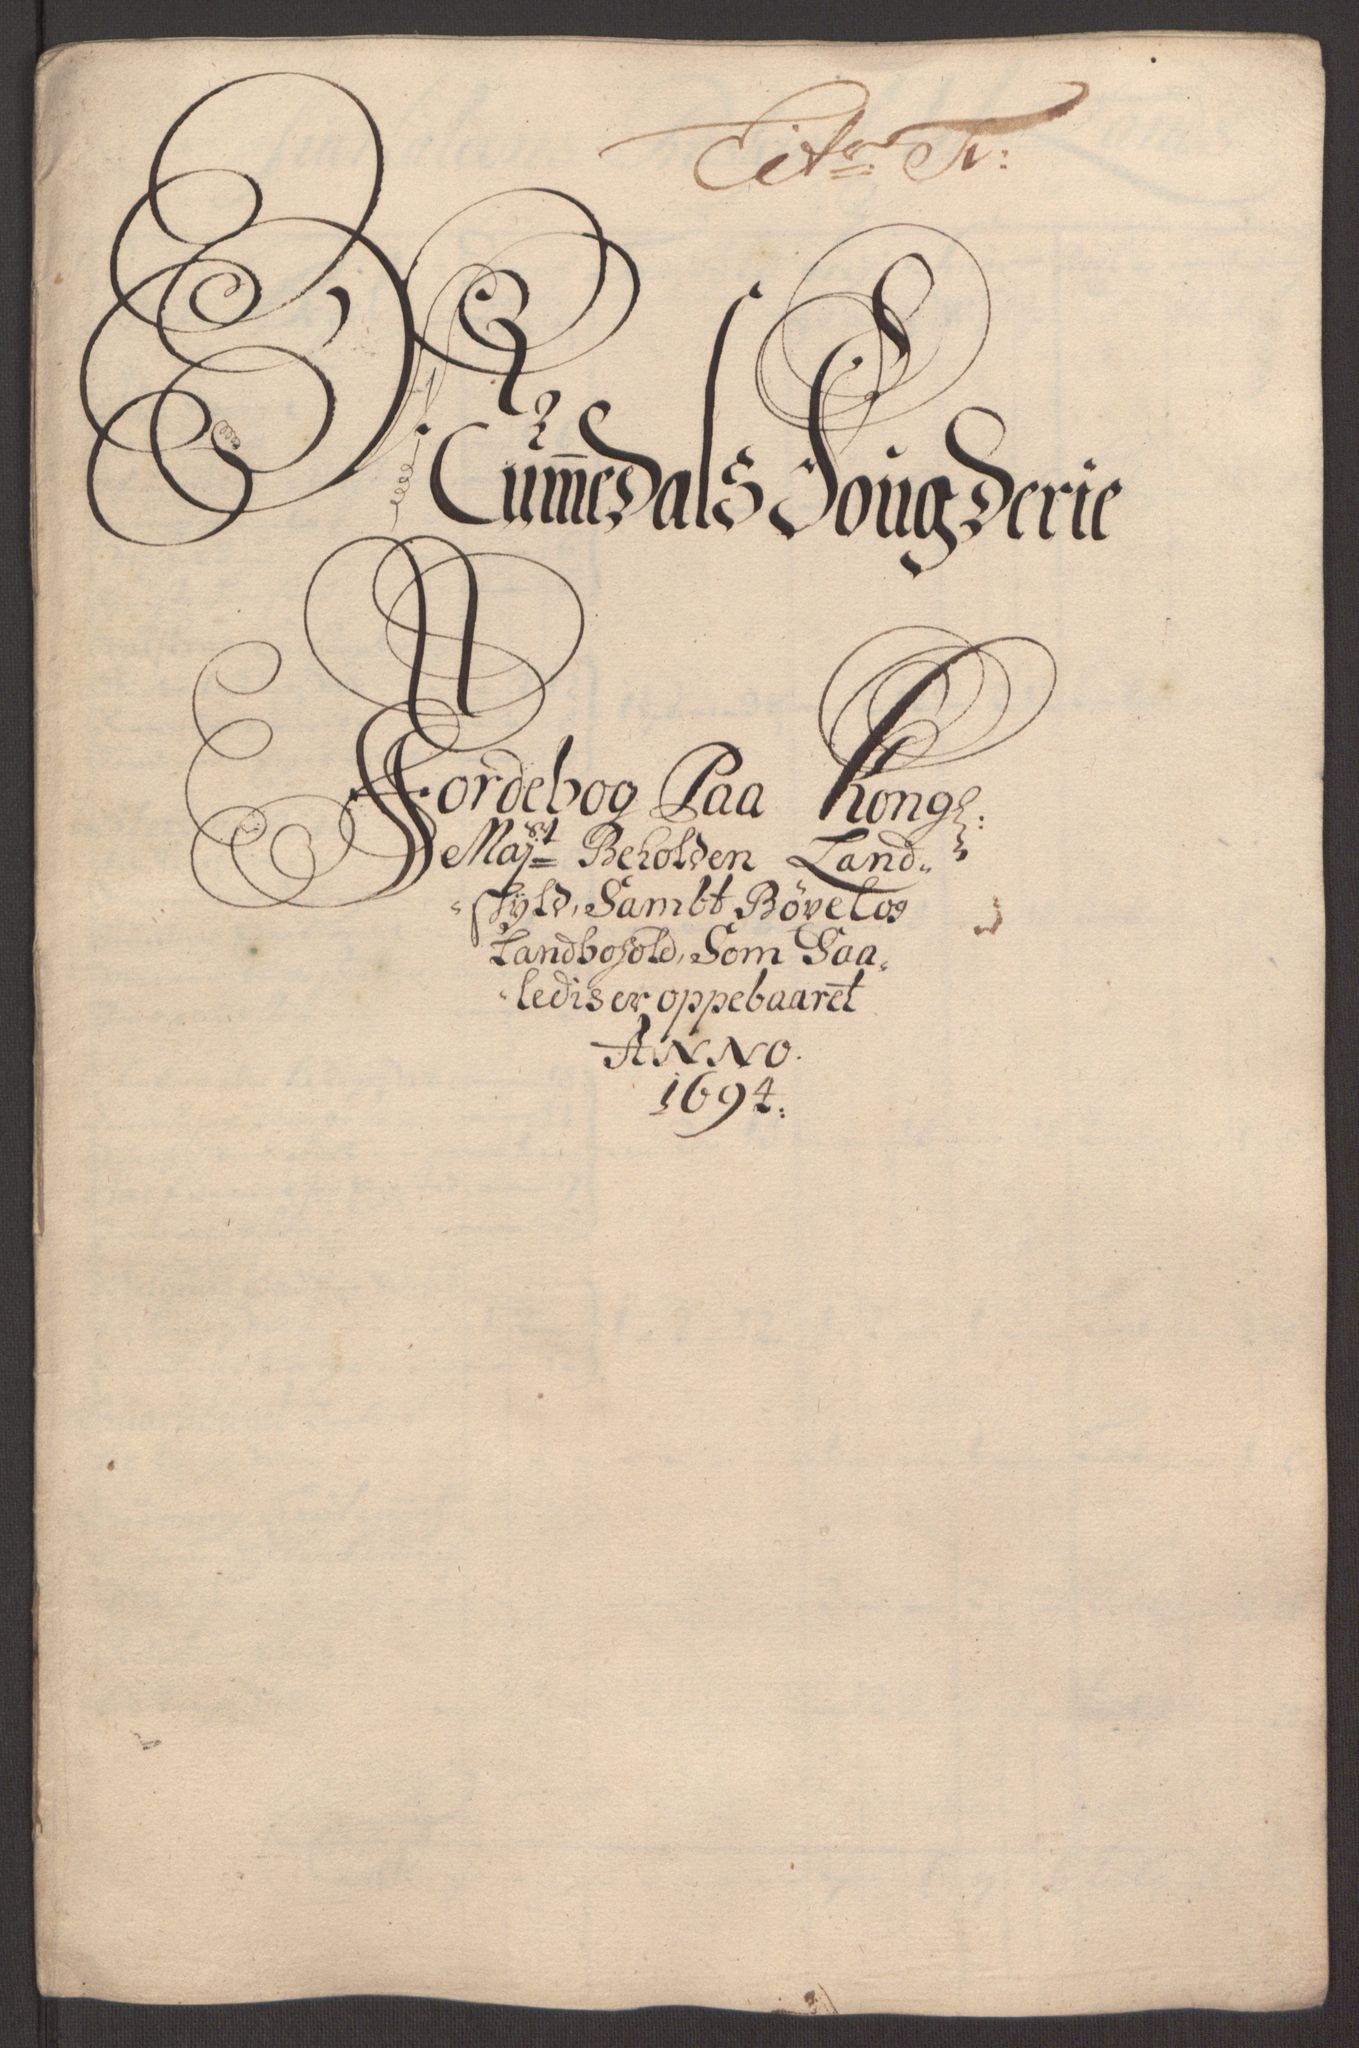 Litr: F:
Nummedals Fougderie
Jordebog Paa Kong:
Maj:st Beholden Land-
skyld, Sambt Böxel og
Landbohold, Som Saa-
ledis er oppebaaret
ANNO.
1694.